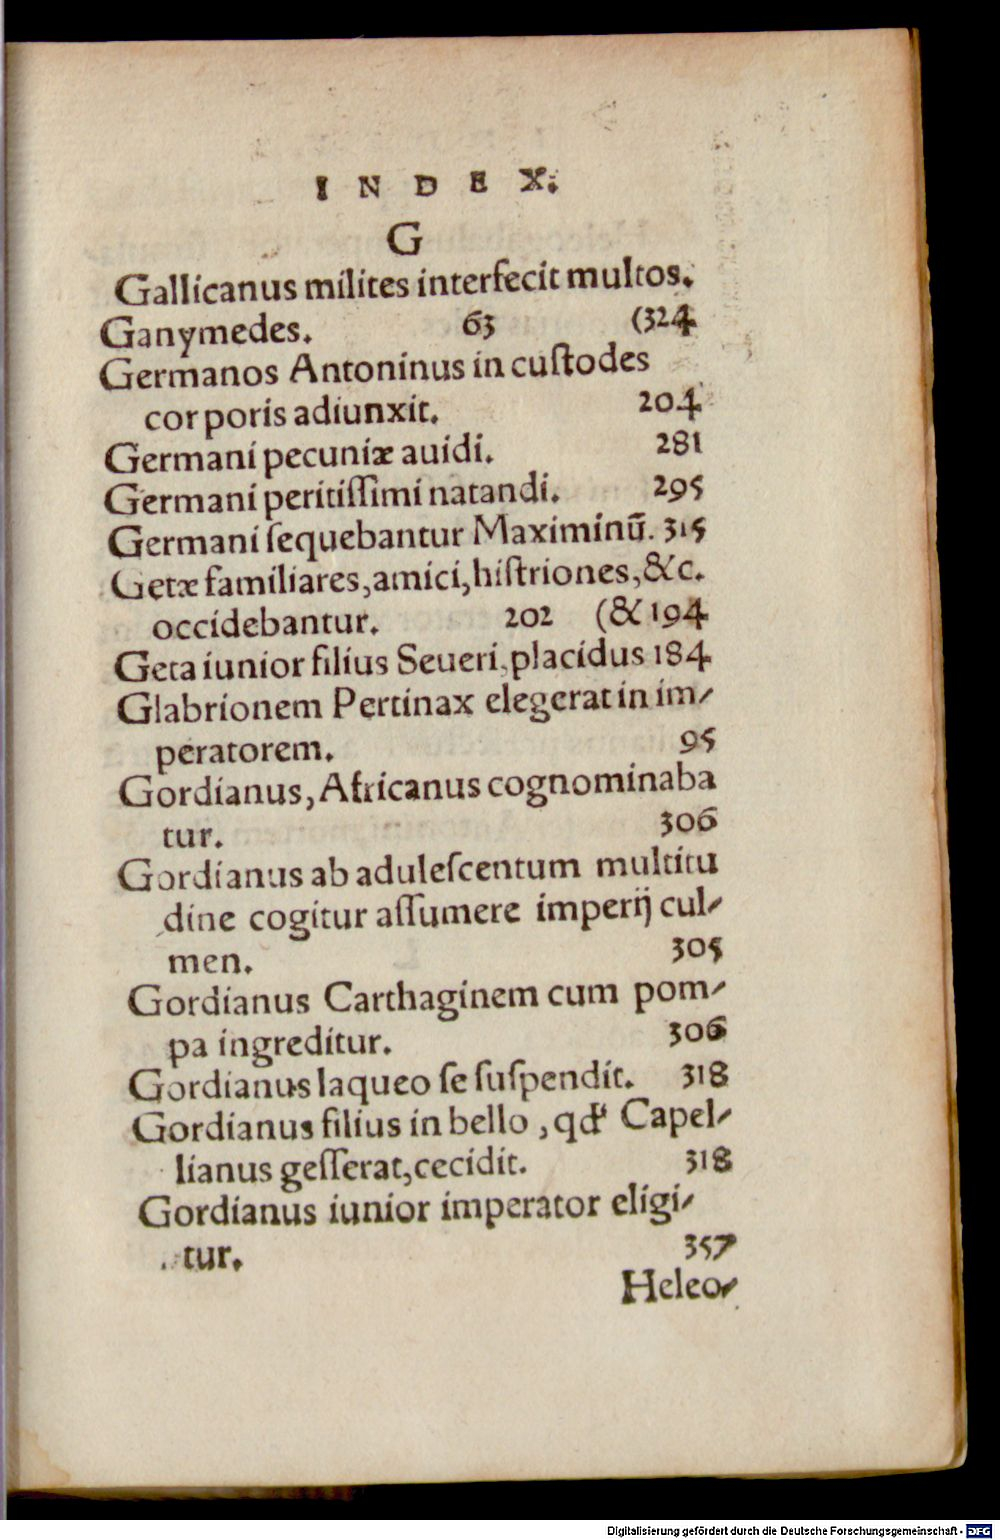 INDEX.
G
Gallicanus milites interfecit multos.
Ganymedes. 63 (324
Germanos Antoninus in cuſtodes
corporis adiunxit. 204
Germani pecuniæ auidi. 281
Germani peritiſſimi natandi. 295
Germani ſequebantur Maximinū. 315
Getæ familiares, amici, hiſtriones, &c.
occidebantur. 202 (& 194
Geta iunior filius Seueri, placidus 184
Glabrionem Pertinax elegerat in im-
peratorem. 95
Gordianus, Africanus cognominaba
tur. 306
Gordianus ab aduleſcentum multitu
dine cogitur aſſumere imperij cul-
men. 305
Gordianus Carthaginem cum pom-
pa ingreditur. 306
Gordianus laqueo ſe ſuſpendit. 318
Gordianus filius in bello, qđ Capel-
lianus geſſerat, cecidit. 318
Gordianus iunior imperator eligi-
tur. 357
Heleo-
Digitalisierung gefördert durch die Deutsche Forschungsgemeinschaft - DFG